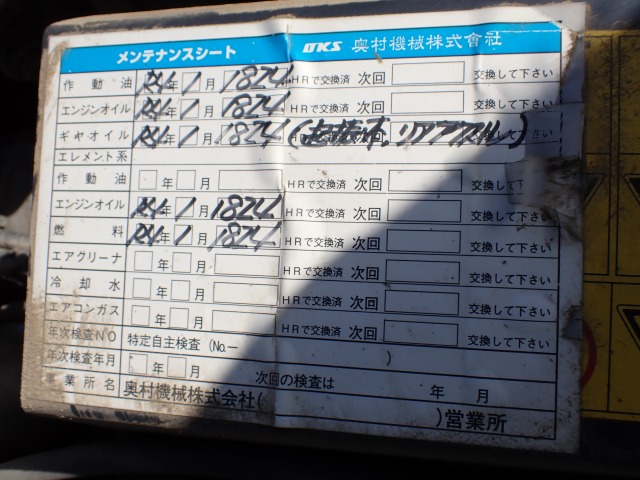 メンテナンスシート OKS 奥村機械株式會社
作動油 R4年1月 1824 HRで交換済 次回 交換して下さい
エンジンオイル R4年1月 1824 HRで交換済 次回 交換して下さい
ギヤオイル R4年1月 1824 リアアクスル)
エレメント系
作動油 年 月 HRで交換済 次回 交換して下
エンジンオイル R4年1月 1824 HRで交換済 次回 交換して下さい
燃料 R4年1月 1824 HRで交換済 次回 交換して下さい
エアクリーナ 年 月 HRで交換済 次回 交換して下さい
冷却水 年 月 HRで交換済 次回 交換して下さい
エアコンガス 年 月 HRで交換済 次回 交換して下さい
年次検査NO 特定自主検査(No.ー )
年次検査年月 年 月 次回の検査は 年 月
事業所名 奥村機械株式会社( )営業所